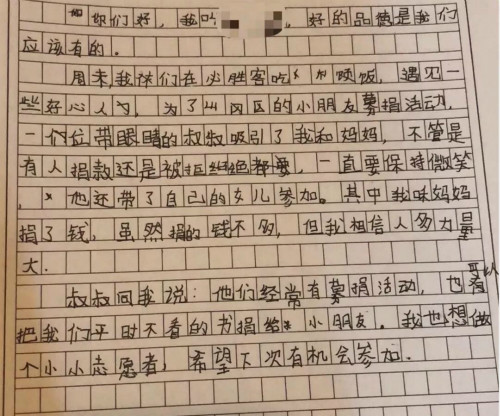 你们好，我叫，好的品德是我们
应该有的。
周末，我们在必胜客吃顿饭，遇见一
些好心人为，为了山区的小朋友募捐活动，
一们位带眼睛的叔叔吸引了我和妈妈，不管是
有人捐款还是被拒绝都要，一直要保持微笑
，他还带了自己的女儿参加。其中我妈妈
捐了钱，虽然捐的钱不多，但我相信人多力量
大.
叔叔同我说：他们经常有募捐活动，也可以
把我们平时不看的书捐给小朋友。我也想做
个小小志愿者，希望下次有机会参加.